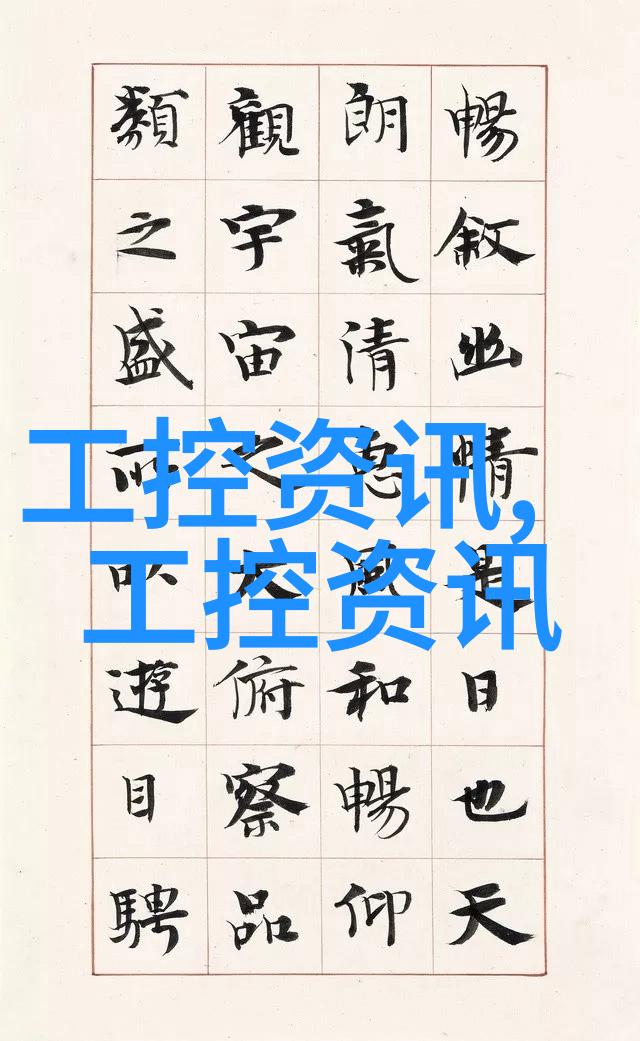 暢敘幽情是日也天
朗氣清惠風和暢仰
觀宇宙之大俯察品
類之盛所以遊目騁
工控资讯,
工控资讯